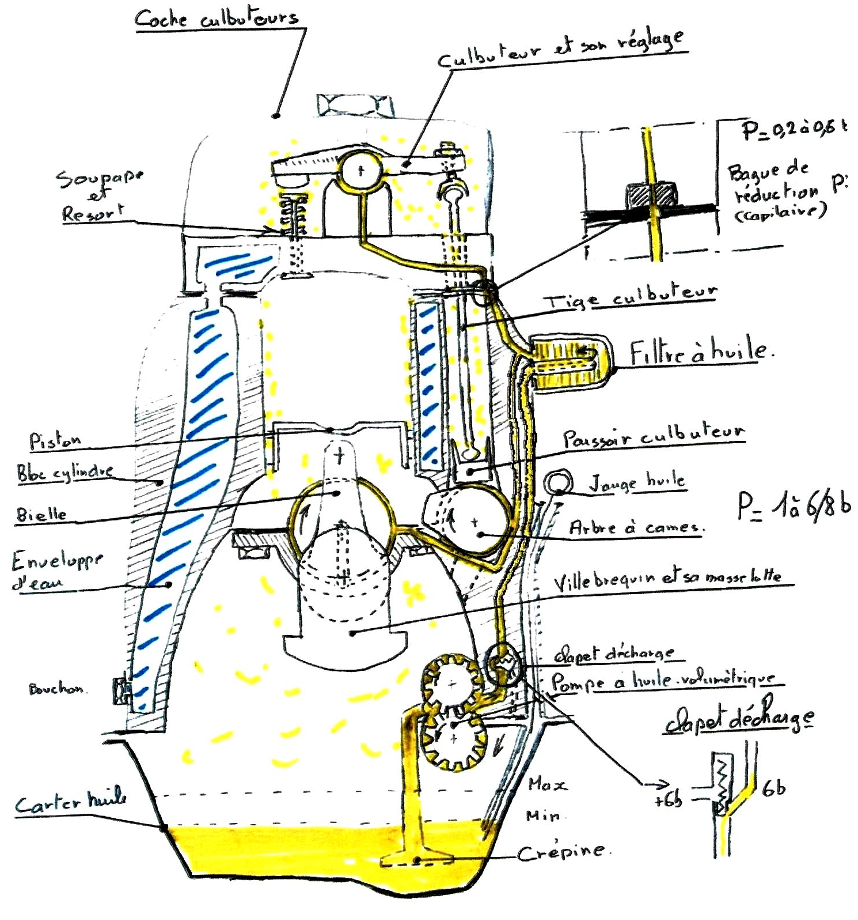 Coche culbuteurs
Culbuteur et son réglage
P=0,2 à 0,6 b
Bague de
réduction P:
(capilaire)
Soupape
et
Resort
Tige culbuteur
Filtre à huile.
Piston
Bloc cylindre
Bielle
Enveloppe
d'eau
Poussoir culbuteur
Jauge huile
P= 1 à 6/8 b
Arbre à cames.
Villebrequin et sa masselotte
clapet décharge
Pompe a huile volumétrique
Bouchon.
clapet décharge
+6b
6b
Max
Min.
Carter huile
Crépine.